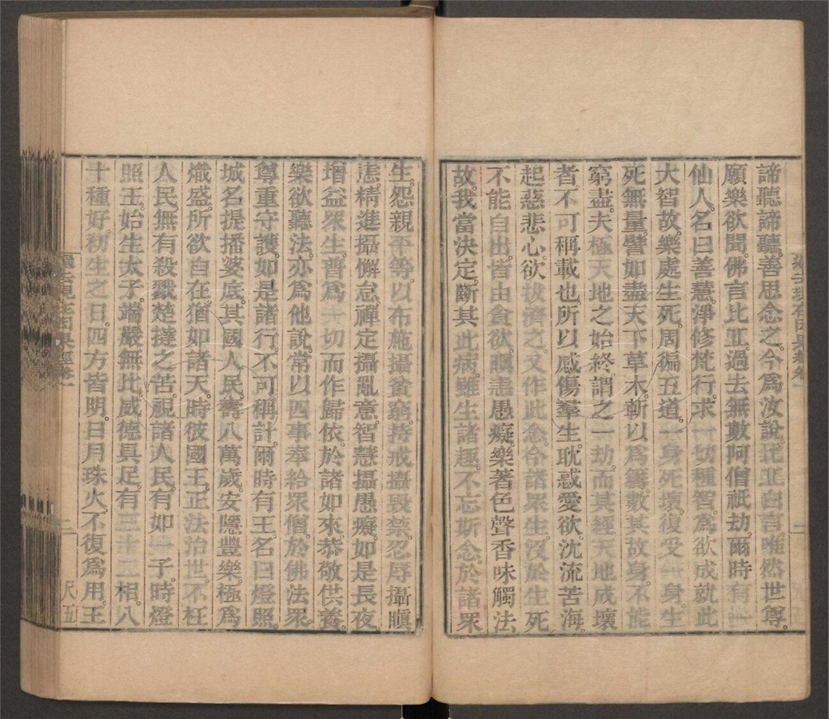 諦聽諦聽善思念之今爲汝說比丘白言唯然世尊
願樂欲聞佛言比丘過去無數阿僧祇劫爾時有一
仙人名曰善慧淨修梵行求一切種智爲欲成就此
大智故樂處生死周徧五道一身死壞復受一身生
死無量譬如盡天下草木斬以爲籌數其故身不能
窮盡夫極天地之始終謂之一劫而其經天地成壞
者不可稱載也所以感傷羣生耽惑愛欲沈流苦海
起慈悲心欲拔濟之又作此念今諸眾生沒於生死
不能自出皆由貪欲瞋恚愚癡樂著色聲香味觸法
故我當決定斷其此病雖生諸趣不忘斯念於諸眾
生怨親平等以布施攝貧窮持戒攝毀禁忍辱攝瞋
恚精進攝懈怠禪定攝亂意智慧攝愚癡如是長夜
增益眾生普爲一切而作歸依於諸如來恭敬供養
樂欲聽法亦爲他說常以四事奉給眾僧於佛法眾
尊重守護如是諸行不可稱計爾時有王名曰燈照
城名提播婆底其國人民壽八萬歲安隱豐樂極爲
熾盛所欲自在猶如諸天時彼國王正法治世不枉
人民無有殺戮楚撻之苦視諸人民有如一子時燈
照王始生太子端嚴無比威德具足有三十二相八
十種好初生之日四方皆明日月珠火不復爲用王